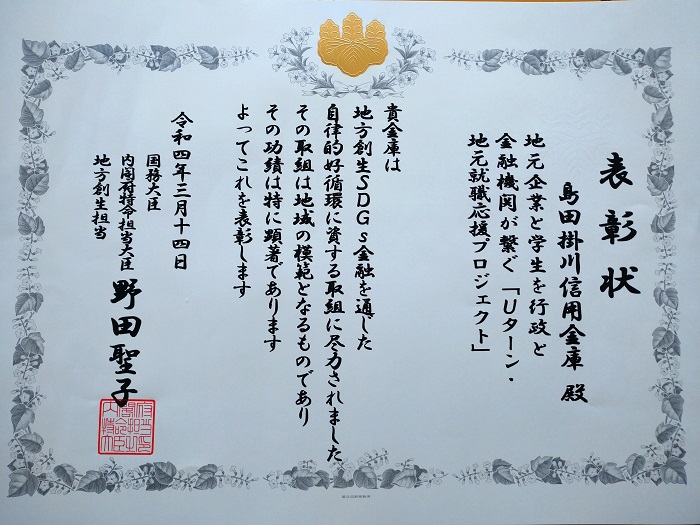 表彰状
島田掛川信用金庫 殿
地元企業と学生を行政と
金融機関が繋ぐ「Uターン・
地元就職応援プロジェクト」
貴金庫は
地方創生SDGs金融を通した
自律的好循環に資する取組に尽力されました
その取組は地域の模範となるものであり
その功績は特に顕著であります
よってこれを表彰します
令和四年三月十四日
国務大臣
内閣府特命担当大臣
地方創生担当
野田聖子